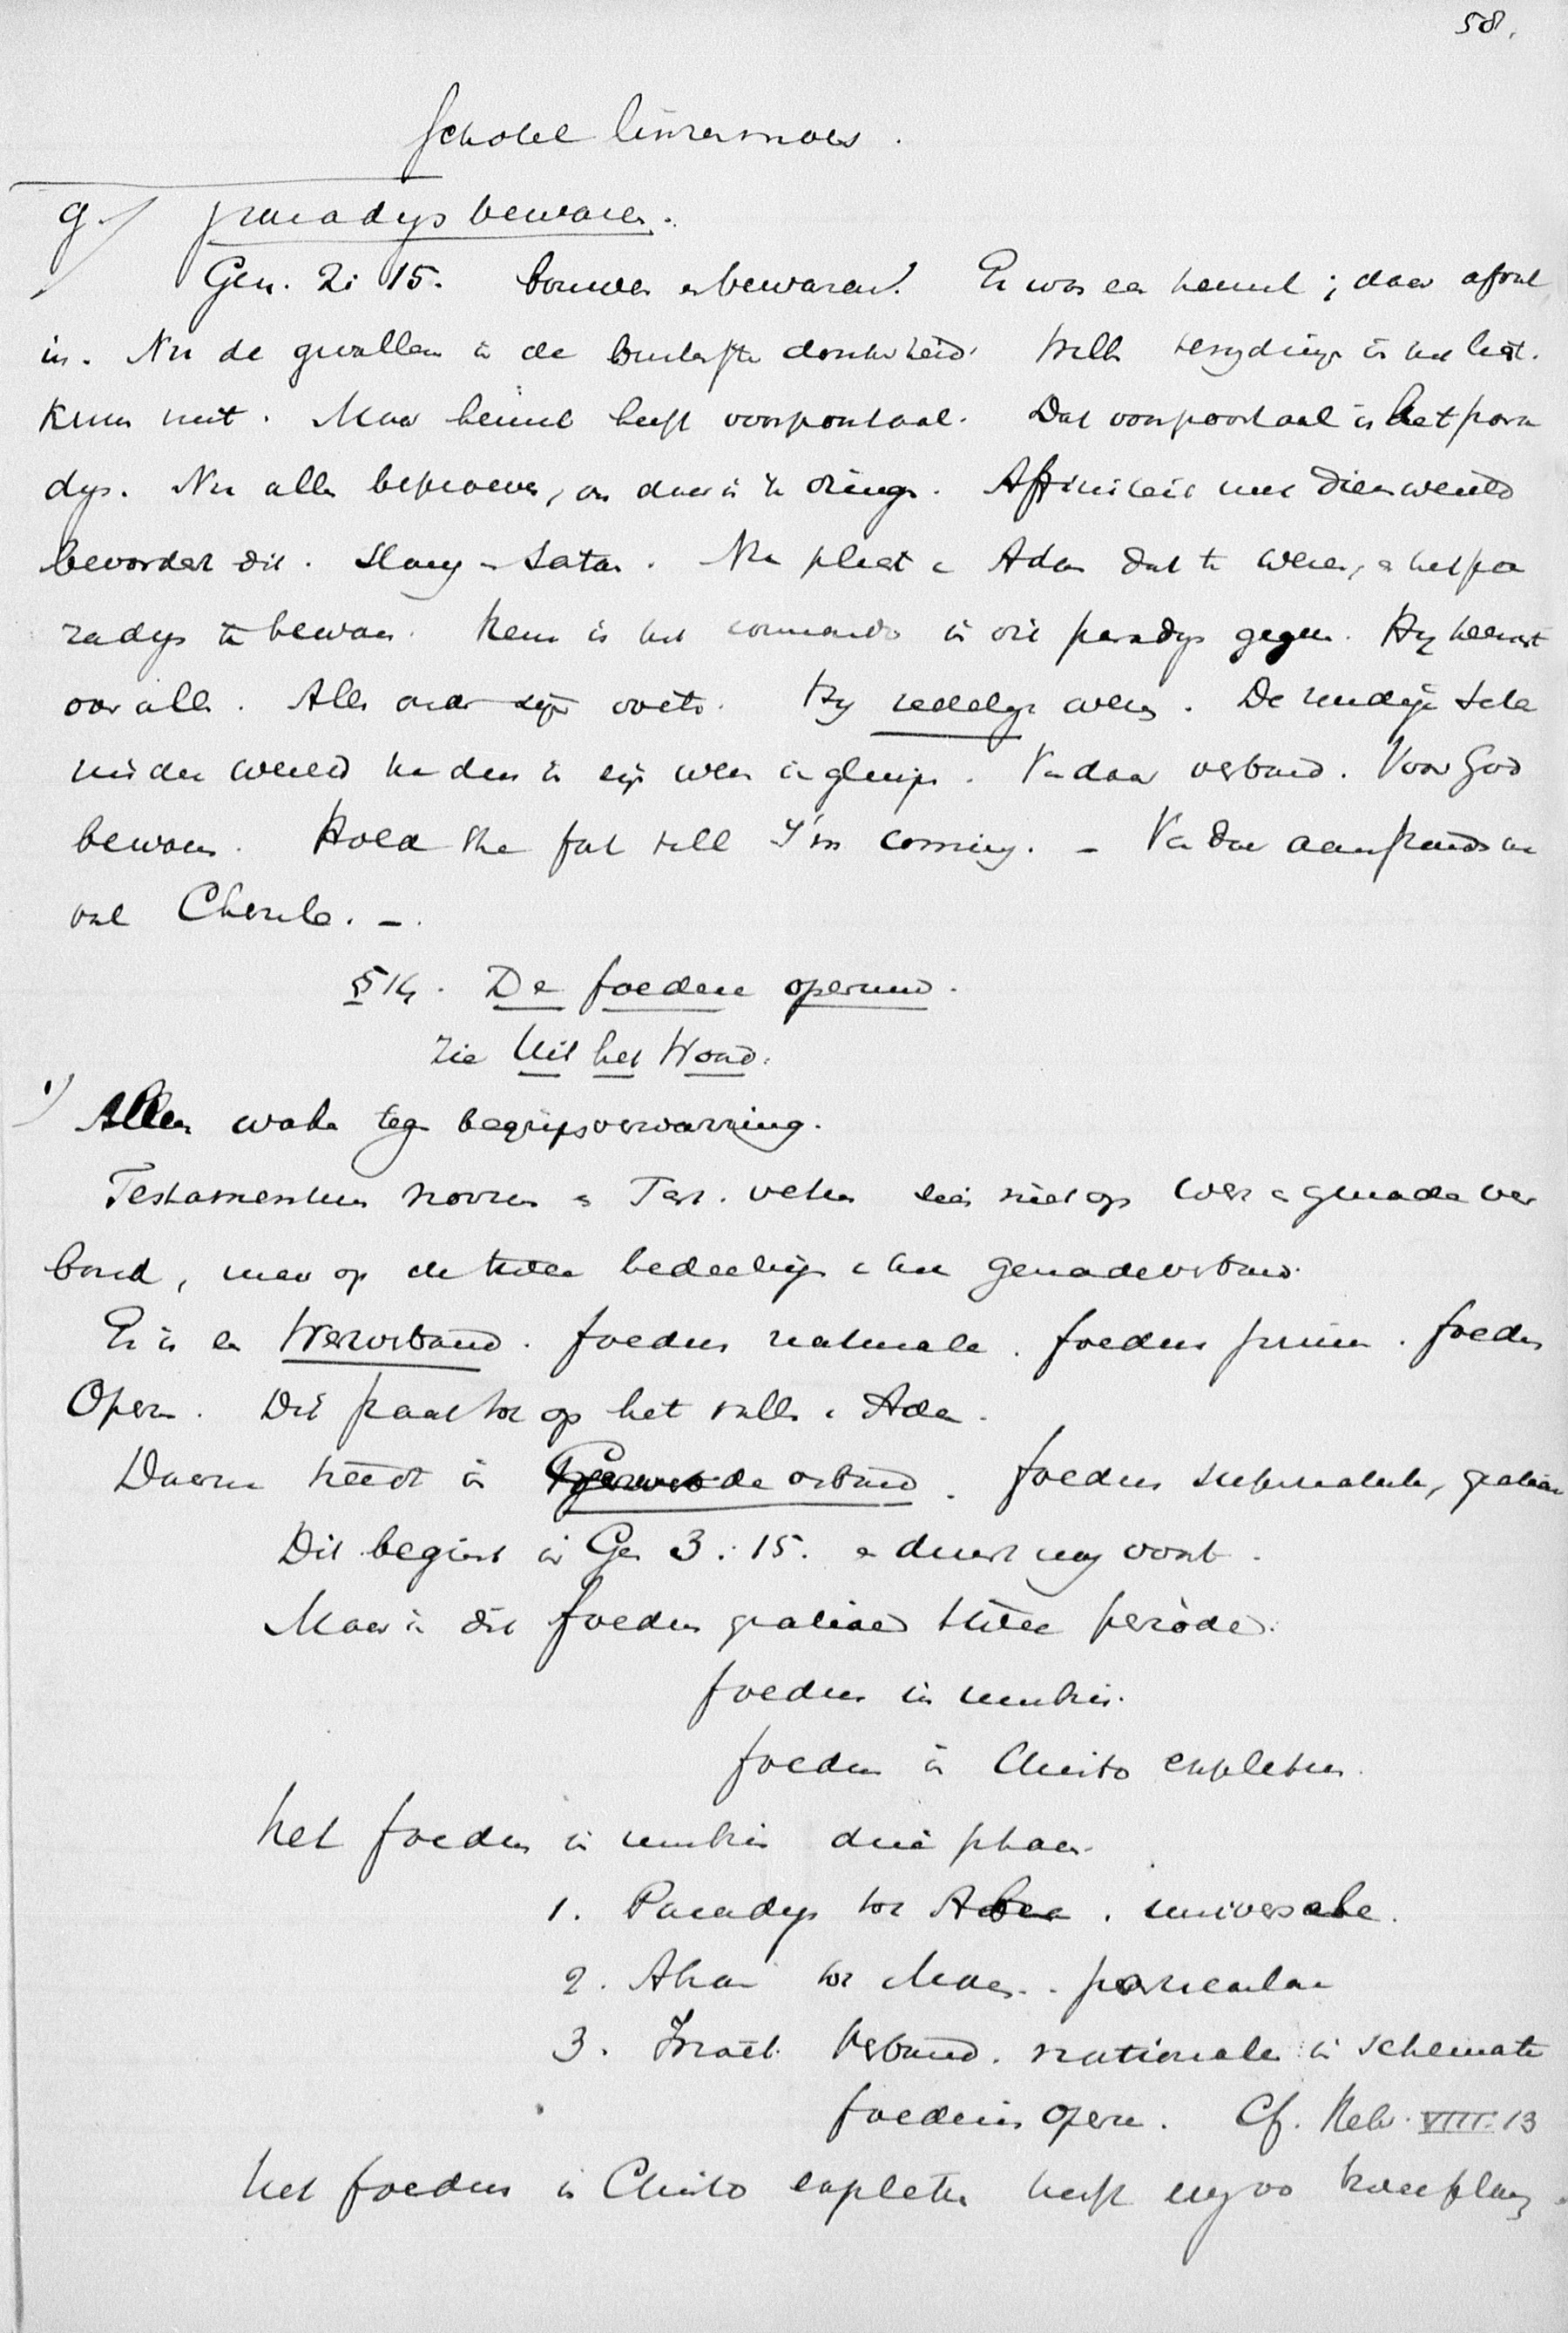 58.
Schotel linzenmoes.
g./ paradys bewaren.
Gen. 2:15. bouwen en bewaren. Er was een hemel; daar afval
in. Nu de gevallen in de buitenste donkerheid.
Maar hemel heeft voorportaal. Dat voorportaal is het para
dys. Nu alles beproeven, om daar in te dringen. Affiniteit met dierenwereld
bevordert dit. Slang - Satan. Nu plicht v Adam dat te weren, en het pa
radys te bewaren. Hem is het commando in dit paradys gegeven. Hy heerscht
over alles. Alles onder zijn voeten. Hy redelyk wezen.
Van daar verbond. Voor God
bewaren. Hold the fort till I'm coming. - Van daar
Cherub. -.
§ 14. De foedere operum.
Zie Uit het Woord.
1) Allen wake tegen begripsverwarring.
Testamentum novum en Test. vetus niet op werk en genade ver
bond, maar op de twee bedeelingen v het genadeverbond.
Er is een Werkverbond. foedus naturale. foedus primum. foedus
Oper. Dit tot op het val v Adam.
Daarna treedt in Genade verbond. foedus supernaturale, gratiae
Dit begint in Gen 3:15. en duurt nog voort.
Maar in dit foedus gratiae twee perioden.
foedus in umbris.
foedus in Christo expletum.
het foedus in umbris drie phasen.
1. Paradys tot Abra. universale.
2. Abra tot Mozes. particulare
3. Israël. Verbond. nationale in schemate
foederis oper. Cf. Hebr. VIII:13
het foedus in Christo expletum heeft